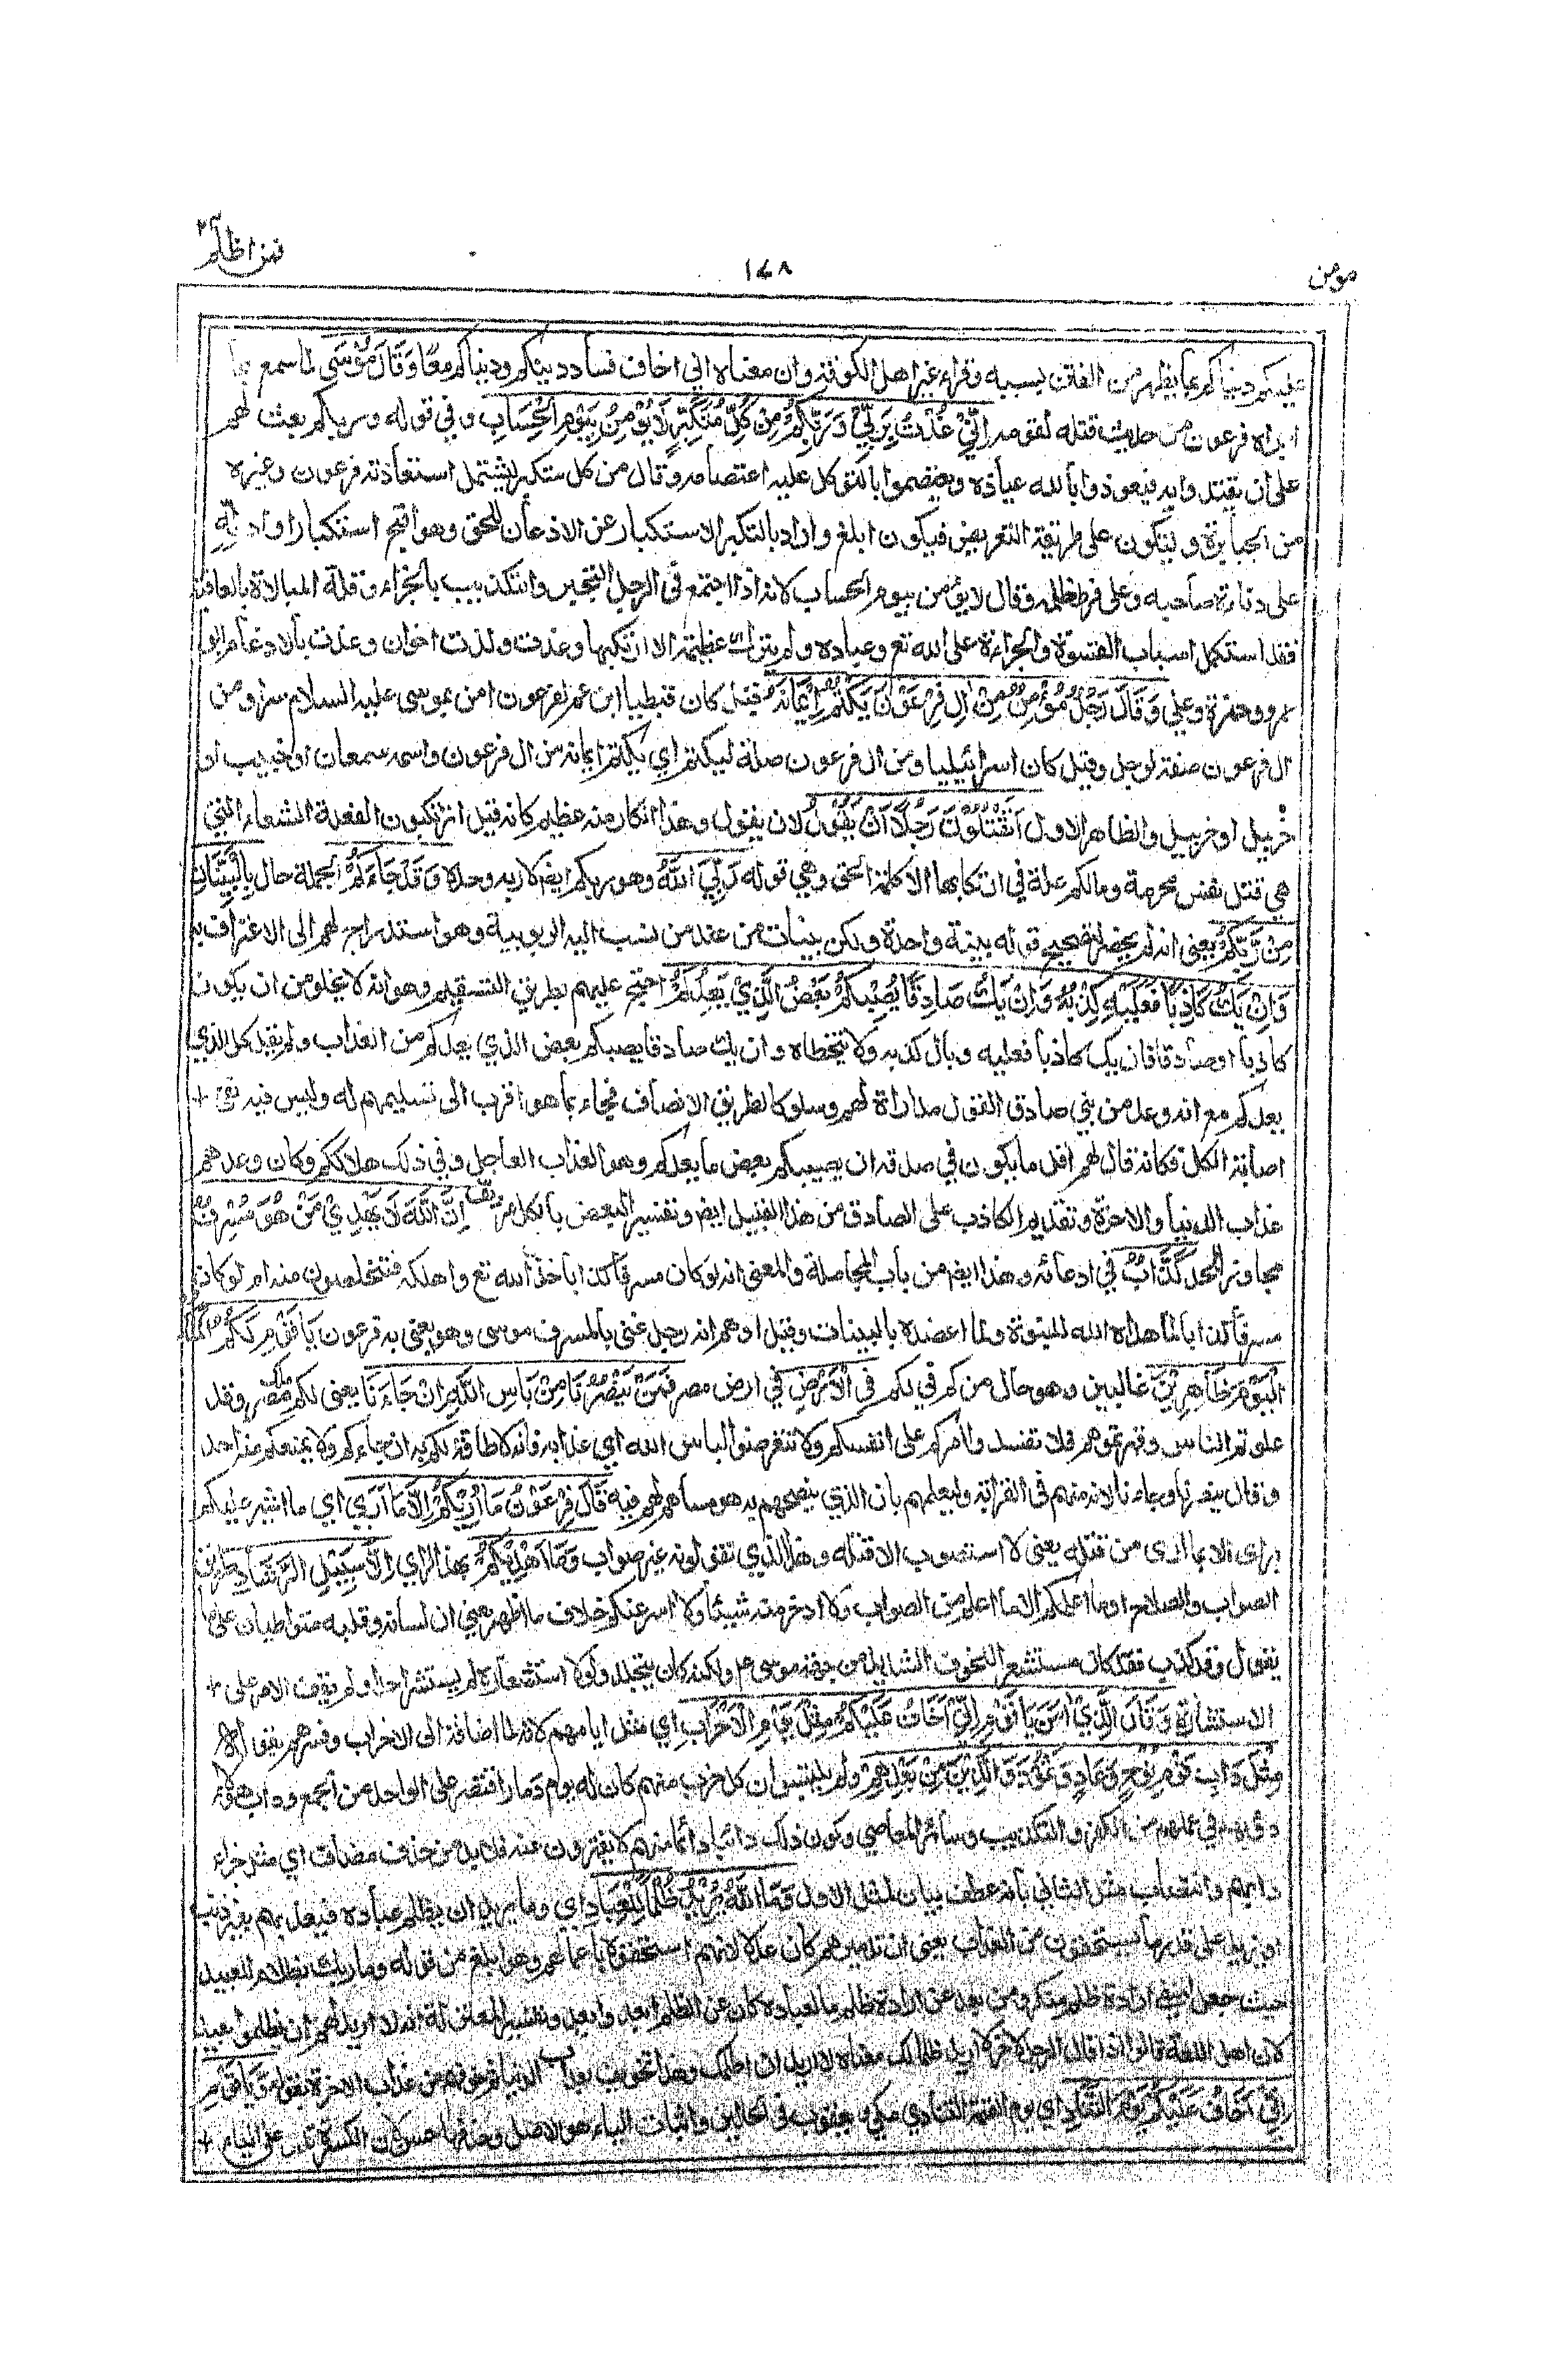 فمن اظلم ٢٤
١٤٨
مومن
عليكم دينكم بما يظهر من الفتن بسببه وقراء غير اهل الكوفة وان معناه اني اخاف فساد دينكم ودنياكم معًا وَقَالَ مُوْسَى لما سمع بما
اجراه فرعون من حديث قتله لقومه اِنِّيْ عُذْتُ بِرَبِّيْ وَرَبِّكُمْ مِنْ كُلِّ مُتَكَبِّرٍ لَايُؤْمِنُ بِيَوْمِ الْحِسَابِ وفي قوله وربكم بعث لهم
على ان يقتدوا به فيعوذوا بالله عياذه ويعتصموا بالتوكل عليه اعتصامه وقال من كل متكبر ليشتمل استعاذته فرعون وغيره
من الجبابرة وليكون على طريقة التعريض فيكون ابلغ واراد بالتكبر الاستكبار عن الاذعان للحق وهو اقبح استكبار وادله
على دناءة صاحبه وعلى فرط ظلمه وقال لايؤمن بيوم الحساب لانه اذا اجتمع في الرجل التجبر والتكذيب بالجزاء وقلة المبالاة بالعاقبة
فقد استكمل اسباب القسوة والجراءة على الله تع وعباده ولم يترك عظيمة الا ارتكبها وعذت ولذت اخوان وعذت بالادغام ابو
عمرو وحمزة وعلي وَقَالَ رَجُلٌ مُّؤْمِنٌ مِّنْ اٰلِ فِرْعَوْنَ يَكْتُمُ اِيْمَانَهٗ قيل كان قبطيا ابن عم لفرعون امن بموسى عليه السلام سرا ومن
ال فرعون صفة لرجل وقيل كان اسرائيليا ومن ال فرعون صلة ليكتم اي يكتم ايمانه من ال فرعون واسمه سمعان او حبيب او
خربيل او حزبيل والظاهر الاول اَتَقْتُلُوْنَ رَجُلًا اَنْ يَّقُوْلَ لان يقول وهذا انكار منه عظيم كانه قيل اترتكبون الفعلة الشنعاء التي
هي قتل نفس محرمة ومالكم علة في ارتكابها الا كلمة الحق وهي قوله رَبِّيَ اللّٰهُ وهو ربكم ايضا لا ربه وحده وَقَدْ جَاءَكُمْ الجملة حال بِالْبَيِّنَاتِ
مِنْ رَّبِّكُمْ يعني انه لم يحضر لتصحيح قوله بينة واحدة ولكن بينات من عند من نسب اليه الربوبية وهو استدراج لهم الى الاعتراف به
وَاِنْ يَّكُ كَاذِبًا فَعَلَيْهِ كَذِبُهٗ وَاِنْ يَّكُ صَادِقًا يُّصِبْكُمْ بَعْضُ الَّذِيْ يَعِدُكُمْ احتج عليهم بطريق التقسيم وهو انه لا يخلو من ان يكون
كاذبا او صادقا فان يك كاذبا فعليه وبال كذبه ولا يتخطاه وان يك صادقا يصبكم بعض الذي يعدكم من العذاب ولم يقل كل الذي
يعدكم مع انه وعد من نبي صادق القول مداراة لهم وسلوكا لطريق الانصاف فجاء بما هو اقرب الى تسليمهم له وليس فيه نفي
اصابة الكل فكانه قال لهم اقل ما يكون في صدقه ان يصيبكم بعض ما يعدكم وهو العذاب العاجل وفي ذلك هلاككم وكان وعدهم
عذاب الدنيا والاخرة وتقديم الكاذب على الصادق من هذا القبيل ايضا وتفسير البعض بالكل مزيف اِنَّ اللّٰهَ لَا يَهْدِيْ مَنْ هُوَ مُسْرِفٌ
مجاوز الحد كَذَّابٌ في ادعائه وهذا ايضا من باب المجاملة والمعنى انه لو كان مسرفا كذابا خذله الله تع واهلكه فتتخلصون منه او لو كان
مسرفا كذابا لما هداه الله للنبوة ولما اعضده بالبينات وقيل اوهم انه رجل عنى بالمسرف موسى وهو يعني به فرعون يَا قَوْمِ لَكُمُ الْمُلْكُ
الْيَوْمَ ظَاهِرِيْنَ غالبين وهو حال من كم في لكم فِى الْاَرْضِ في ارض مصر فَمَنْ يَّنْصُرُنَا مِنْ بَاْسِ اللّٰهِ اِنْ جَاءَنَا يعني لكم ملك مصر وقد
علوتم الناس وقهرتموهم فلا تفسدوا امركم على انفسكم ولا تتعرضوا لباس الله اي عذابه فانه لا طاقة لكم به ان جاءكم ولا يمنعكم منه احد
وقال ينصرنا وجاءنا لانه منهم في القرابة وليعلمهم بان الذي ينصحهم به هو مساهم لهم فيه قَالَ فِرْعَوْنُ مَا اُرِيْكُمْ اِلَّا مَا اَرٰى اي ما اشير عليكم
براى الا بما ارى من قتله يعني لا استصوب الا قتله وهذا الذي تقولونه غير صواب وَمَا اَهْدِيْكُمْ بهذا الراي اِلَّا سَبِيْلَ الرَّشَادِ طريق
الصواب والصلاح او ما اعلمكم الا ما اعلم من الصواب ولا ادخر منه شيئا ولا اسر عنكم خلاف ما اظهر يعني ان لسانه وقلبه متواطيان على ما
يقول وقد كذب فقد كان مستشعر للخوف الشديد من جهة موسى ع ولكنه كان يتجلد ولولا استشعاره لم يستشر احدا ولم يقف الامر على
الاستشارة وَقَالَ الَّذِيْ اٰمَنَ يَا قَوْمِ اِنِّيْ اَخَافُ عَلَيْكُمْ مِثْلَ يَوْمِ الْاَحْزَابِ اي مثل ايامهم لانه لما اضافه الى الاحزاب وفسرهم بقوله
مِثْلَ دَاْبِ قَوْمِ نُوْحٍ وَّعَادٍ وَّثَمُوْدَ وَالَّذِيْنَ مِنْ بَعْدِهِمْ ولم يلتبس ان كل حزب منهم كان له يوم دمار اقتصر على الواحد من الجمع وداب هؤلاء
دؤبهم في عملهم من الكفر والتكذيب وسائر المعاصي وكون ذلك دائبا دائما منهم لا يفترون عنه ولا بد من حذف مضاف اي مثل جزاء
دابهم وانتصاب مثل الثاني بانه عطف بيان لمثل الاول وَمَا اللّٰهُ يُرِيْدُ ظُلْمًا لِّلْعِبَادِ اي وما يريد ان يظلم عباده فيعذبهم بغير ذنب
او يزيد على قدر ما يستحقون من العذاب يعني ان تدميرهم كان عدلا لانهم استحقوه باعمالهم وهو ابلغ من قوله وما ربك بظلام للعبيد
حيث جعل المنفي ارادة ظلم منكر ومن بعد عن ارادة ظلم ما لعباده كان عن الظلم ابعد وابعد وتفسير المعتزلة انه لا يريد لهم ان يظلموا بعيد
لان اهل اللغة قالوا اذا قال الرجل لاخر لا اريد ظلما لك معناه لا اريد ان اظلمك وهذا تخويف بعذاب الدنيا ثم خوفهم من عذاب الاخرة بقوله وَيَا قَوْمِ
اِنِّيْ اَخَافُ عَلَيْكُمْ يَوْمَ التَّنَادِ اي يوم القيمة التنادي مكي ويعقوب في الحالين واثبات الياء هو الاصل وحذفها حسن لان الكسرة تدل على الياء